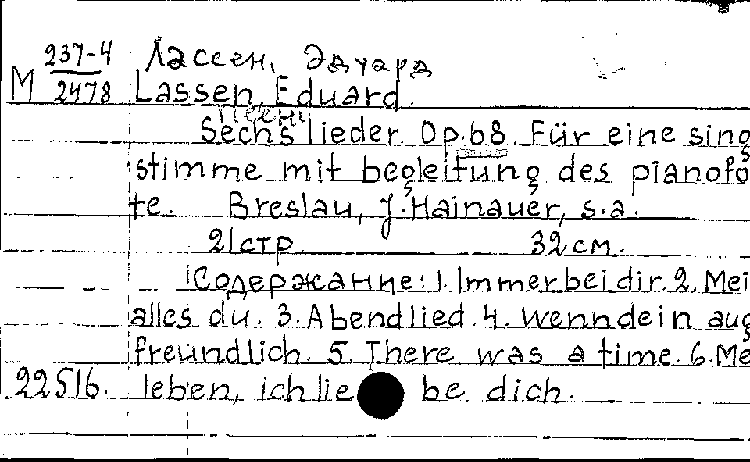 237-4 Лассен, Эдуард
М 2478 Lassen, Eduard.
Песни
Sechs lieder. Op.68. Für eine sing
stimme mit begleitung des pianofo
te. Breslau, J. Hainauer, s.a.
21 стр. 32 см.
Содержание: 1. Immer bei dir. 2. Mei
alles du. 3. Abendlied. 4. Wenn dein aug
freundlich. 5. There was a time. 6. Me
22516. leben, ich liebe dich.